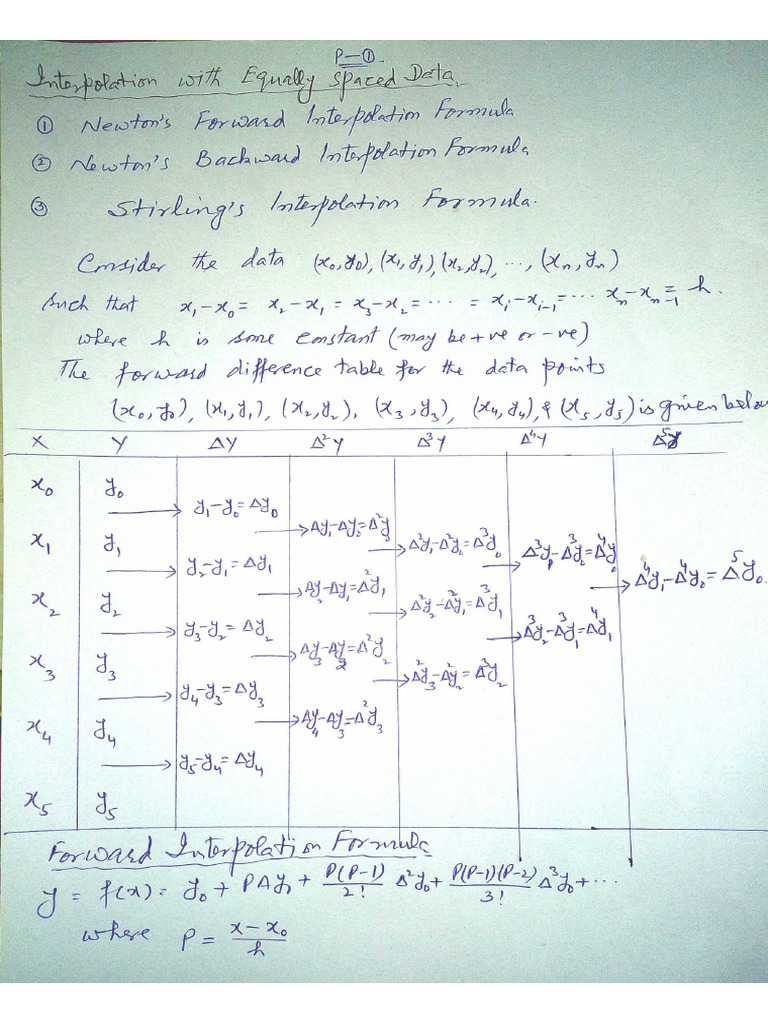 P-①.
Interpolation with Equally Spaced Data.
① Newton's Forward Interpolation Formula
② Newton's Backward Interpolation Formula
③ Stirling's Interpolation Formula.
Consider the data (x₀,y₀), (x₁,y₁), (x₂,y₂), ..., (xₙ,yₙ)
Such that x₁-x₀ = x₂-x₁ = x₃-x₂ = ... = xᵢ-xᵢ₋₁ = ... xₙ-xₙ₋₁ = h.
where h is some constant (may be +ve or -ve)
The forward difference table for the data points
(x₀,y₀), (x₁,y₁), (x₂,y₂), (x₃,y₃), (x₄,y₄), & (x₅,y₅) is given below
X Y ΔY Δ²Y Δ³Y Δ⁴Y Δ⁵y
x₀ y₀
→ y₁-y₀=Δy₀
→ Δy₁-Δy₀=Δ²y₀
x₁ y₁ → Δ²y₁-Δ²y₀=Δ³y₀
→ Δ³y₁-Δ³y₀=Δ⁴y₀
→ y₂-y₁=Δy₁
→ Δ⁴y₁-Δ⁴y₀=Δ⁵y₀.
→ Δy₂-Δy₁=Δ²y₁
x₂ y₂ → Δ²y₂-Δ²y₁=Δ³y₁
→ y₃-y₂=Δy₂ → Δ³y₂-Δ³y₁=Δ⁴y₁
→ Δy₃-Δy₂=Δ²y₂
x₃ y₃ → Δ²y₃-Δ²y₂=Δ³y₂
→ y₄-y₃=Δy₃
→ Δy₄-Δy₃=Δ²y₃
x₄ y₄
→ y₅-y₄=Δy₄
x₅ y₅
Forward Interpolation Formula
y = f(x) = y₀ + PΔy₀ + P(P-1)/2! Δ²y₀ + P(P-1)(P-2)/3! Δ³y₀ + ...
where P = x-x₀/h